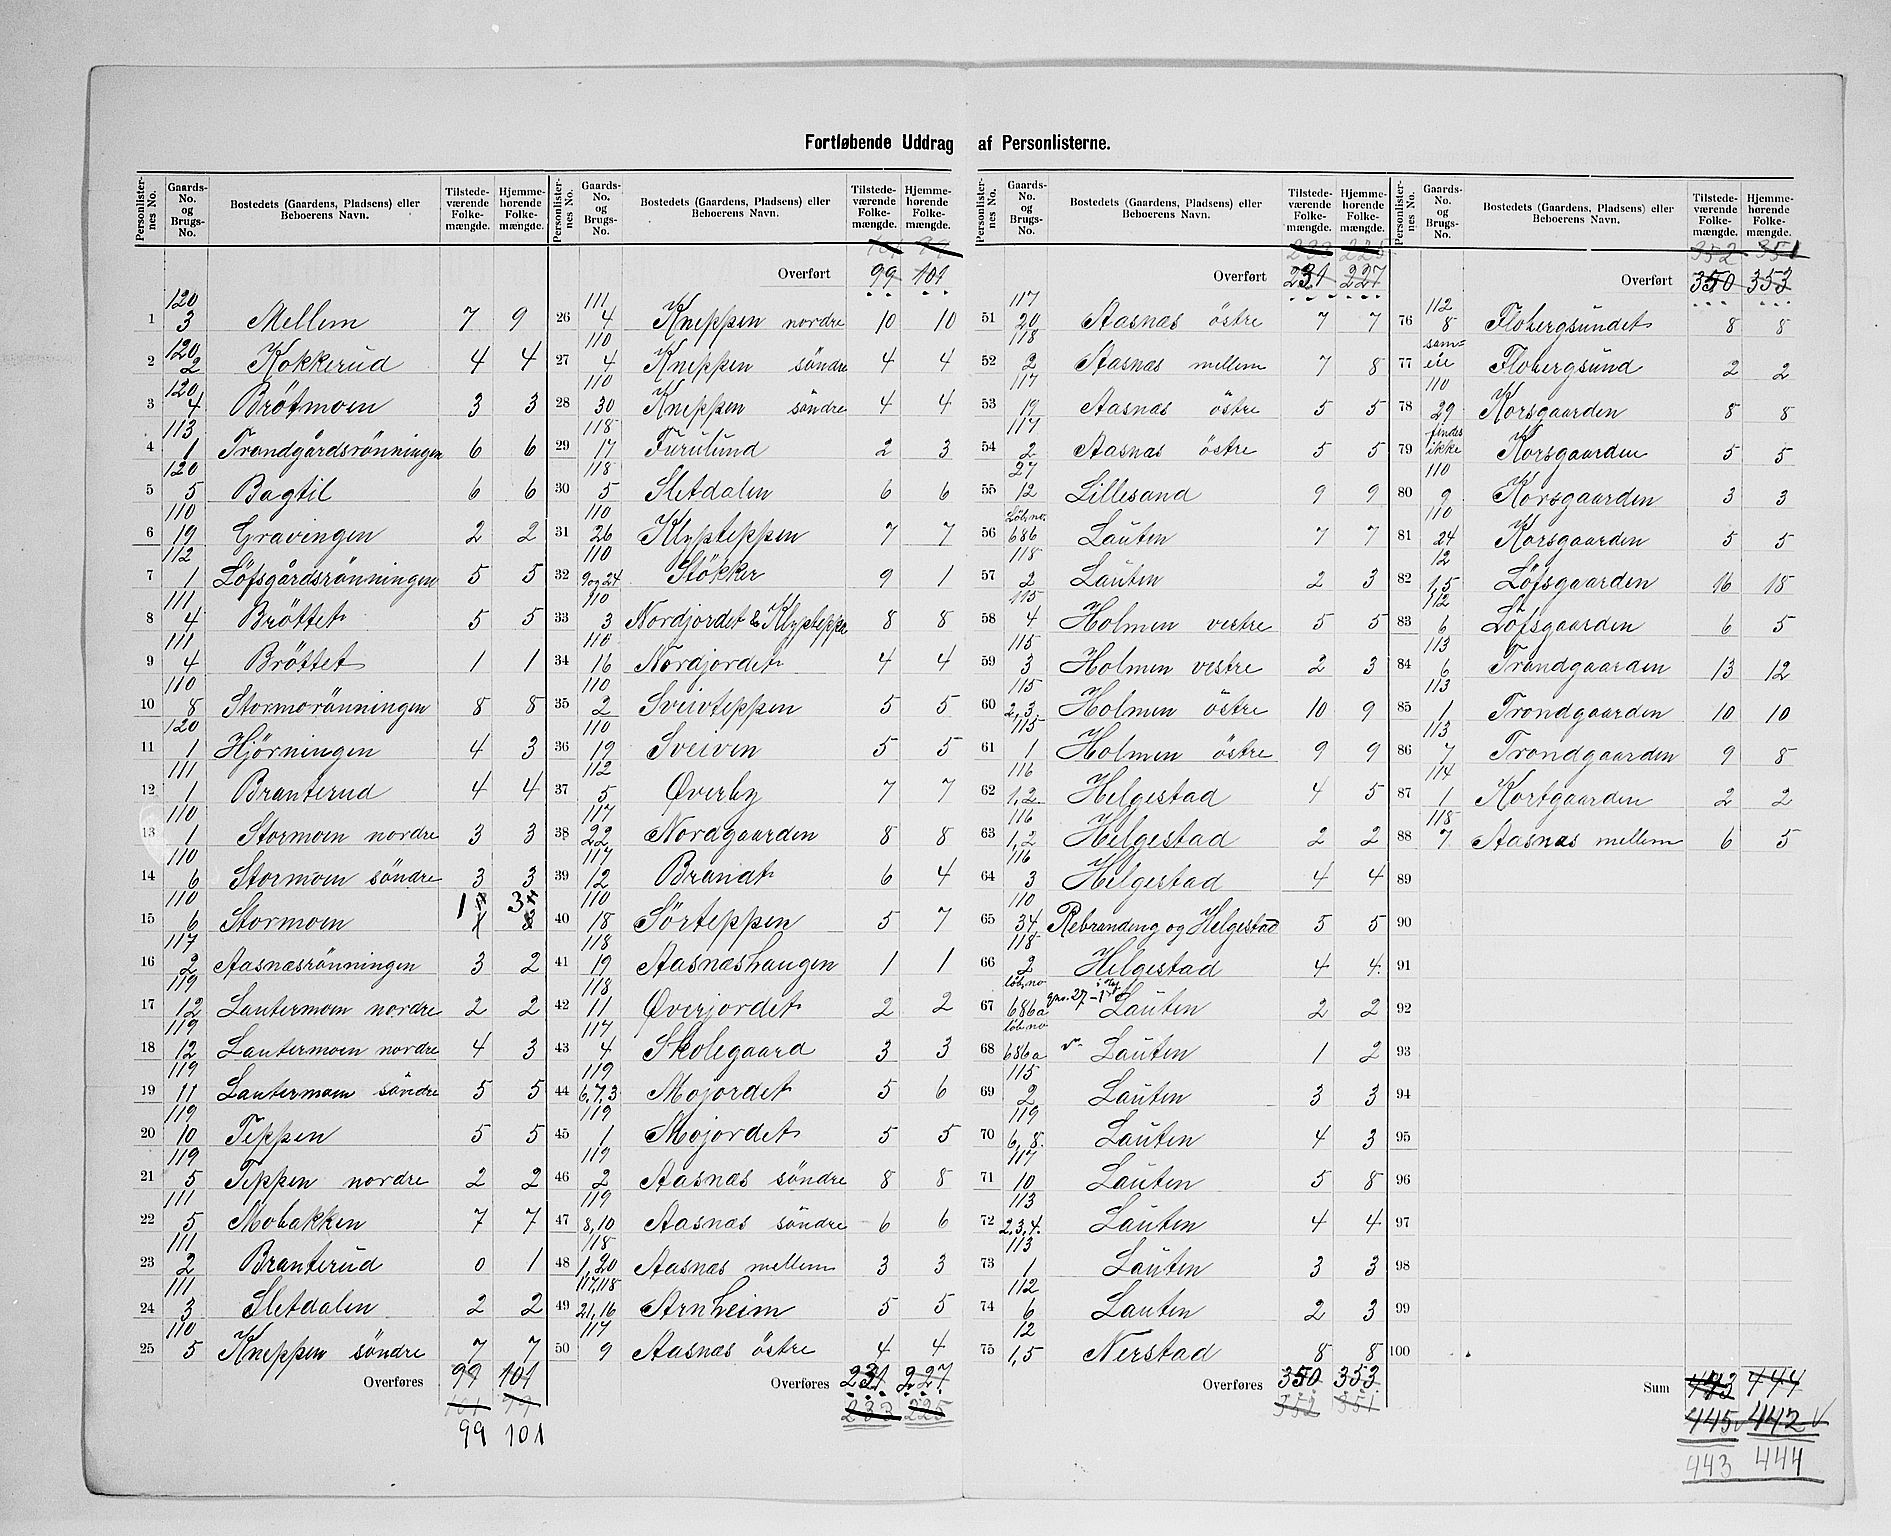 Fortløbende Uddrag af Personlisterne.
Personlister-nes No. Gaards-No. og Brugs-No. Bostedets (Gaardens, Pladsens) eller Beboerens Navn. Tilstede-værende Folke-mængde. Hjemme-hørende Folke-mængde.
1 120 3 Mellem 7 9
2 120 2 Kokkerud 4 4
3 120 4 Brötmoen 3 3
4 113 1 Trondgårdsrönningen 6 6
5 120 5 Bagtil 6 6
6 110 19 Gravingen 2 2
7 112 1 Löfsgårdsrönningen 5 5
8 111 4 Bröttet 5 5
9 111 4 Bröttet 1 1
10 110 8 Stormorönningen 8 8
11 120 1 Hjörningen 4 3
12 111 1 Branterud 4 4
13 110 1 Stormoen nordre 3 3
14 110 6 Stormoen söndre 3 3
15 110 6 Stormoen 1 3
16 117 2 Aasnæsrönningen 3 2
17 119 12 Lautermoen nordre 2 2
18 119 12 Lautermoen nordre 4 3
19 119 11 Lautermoen söndre 5 5
20 119 10 Teppen 5 5
21 119 5 Teppen nordre 2 2
22 111 5 Mobakken 7 7
23 111 2 Branterud 0 1
24 111 3 Sletdalen 2 2
25 110 5 Kneppen söndre 7 7
Overføres 99 101
101 99
99 101
Personlister-nes No. Gaards-No. og Brugs-No. Bostedets (Gaardens, Pladsens) eller Beboerens Navn. Tilstede-værende Folke-mængde. Hjemme-hørende Folke-mængde.
101 99
Overført 99 101
26 111 4 Kneppen nordre 10 10
27 110 4 Kneppen söndre 4 4
28 110 30 Kneppen söndre 4 4
29 118 17 Furulund 2 3
30 118 5 Sletdalen 6 6
31 110 26 Klypteppen 7 7
32 110 9 og 24 Stökker 9 1
33 110 3 Nordjordet & Klypteppe 8 8
34 110 16 Nordjordet 4 4
35 110 2 Sveivteppen 5 5
36 110 19 Sveiven 5 5
37 112 5 Øverby 7 7
38 117 22 Nordgaarden 8 8
39 117 12 Brandt 6 4
40 110 18 Sörteppen 5 7
41 118 19 Aasnæshaugen 1 1
42 118 11 Øverjordet 2 2
43 117 4 Skolegaard 3 3
44 119 6,7,3 Mojordet 5 6
45 119 1 Mojordet 5 5
46 119 2 Aasnæs söndre 8 8
47 119 8,10 Aasnæs söndre 6 6
48 118 1,20 Aasnæs mellem 3 3
49 117,118 21,16 Arnheim 5 5
50 117 9 Aasnæs östre 4 4
Overføres 231 227
233 225
Personlister-nes No. Gaards-No. og Brugs-No. Bostedets (Gaardens, Pladsens) eller Beboerens Navn. Tilstede-værende Folke-mængde. Hjemme-hørende Folke-mængde.
233 225
Overført 231 227
51 117 20 Aasnæs östre 7 7
52 118 2 Aasnæs mellem 7 8
53 117 19 Aasnæs östre 5 5
54 117 2 Aasnæs östre 5 5
55 27 12 Lillesand 9 9
56 Löb.no. 686 Lauten 7 7
57 118 2 Lauten 2 3
58 115 4 Holmen vestre 5 5
59 115 3 Holmen vestre 2 3
60 115 2,3 Holmen östre 10 9
61 115 1 Holmen östre 9 9
62 116 1,2 Helgestad 4 5
63 116 1,2 Helgestad 2 2
64 116 3 Helgestad 4 4
65 110 34 Rebrandeng og Helgestad 5 5
66 118 2 Helgestad 4 4
67 löb.no 686a gno. 27 Lauten 2 2
68 löb.no 686a Lauten 1 2
69 115 2 Lauten 3 3
70 119 6,8 Lauten 4 3
71 117 10 Lauten 5 8
72 113 2,3,4. Lauten 4 4
73 113 1 Lauten 3 3
74 112 6 Lauten 2 3
75 12 1,5 Nerstad 8 8
Overføres 350 353
352 351
Personlister-nes No. Gaards-No. og Brugs-No. Bostedets (Gaardens, Pladsens) eller Beboerens Navn. Tilstede-værende Folke-mængde. Hjemme-hørende Folke-mængde.
352 351
Overført 350 353
76 112 8 Flobergsundet 8 8
77 sam=eie Flobergsund 2 2
78 110 29 Korsgaarden 8 8
79 findes ikke Korsgaarden 5 5
80 110 9 Korsgaarden 3 3
81 110 24 Korsgaarden 5 5
82 12 1,5 Löfsgaarden 16 18
83 112 6 Löfsgaarden 6 5
84 113 6 Trondgaarden 13 12
85 113 1 Trondgaarden 10 10
86 113 7 Trondgaarden 9 8
87 114 1 Kortgaarden 2 2
88 118 7 Aasnæs mellem 6 5
89
90
91
92
93
94
95
96
97
98
99
100
Sum 443 444
445 442
443 444